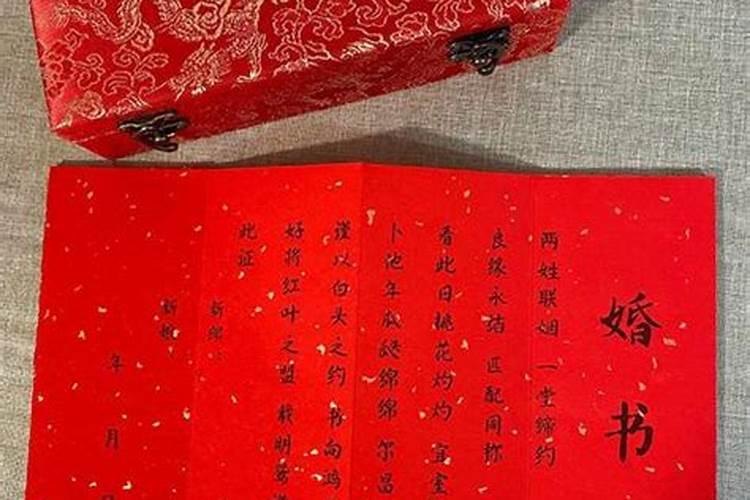 婚书
两姓联姻 一堂缔约
良缘永结 匹配同称
看此日桃花灼灼 宜室
卜他年瓜瓞绵绵 尔昌
谨以白头之约 书向鸿
好将红叶之盟 载明鸳
此证
新郎：
新娘：
年 月